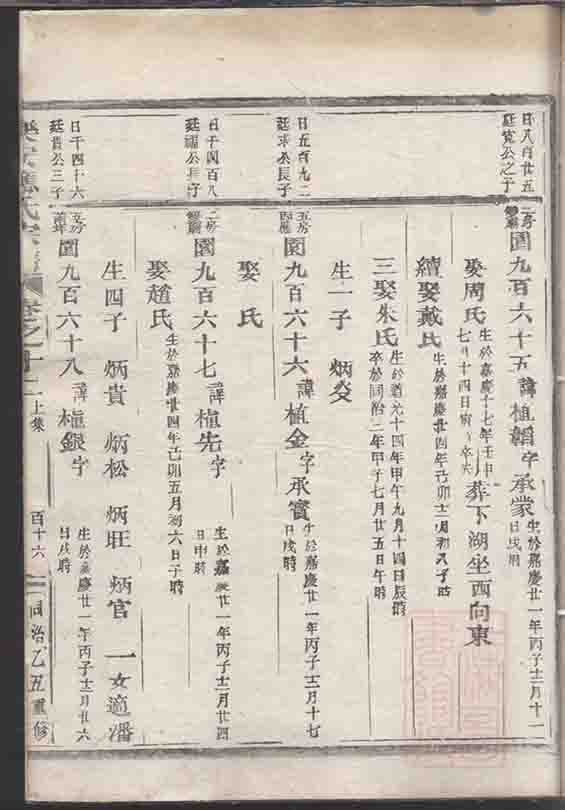 日八百廿五
廷寬公之子
二房
園九百六十五 諱植韜字承蒙 生於嘉慶廿一年丙子十二月十一
日戌時
娶周氏 生於嘉慶十七年壬申
七月十四日寅時卒失 葬下湖坐西向東
續娶戴氏 生於嘉慶廿四年己卯十二月初八子時
三娶朱氏 生於道光十四年甲午九月十四日辰時
卒於同治三年甲子七月廿五日午時
生一子 炳癸
日五百九二
廷求公長子
園九百六十六 諱植金字承寶 生於嘉慶廿一年丙子十二月十七
日戌時
娶 氏
日千四百八
廷福公長子
二房
園九百六十七 諱植先字 生於嘉慶廿一年丙子十二月廿四
日申時
娶趙氏 生於嘉慶廿四年己卯五月初六日子時
生四子 炳貴 炳松 炳旺 炳官 一女適潘
日千四十六
廷貴公三子
園九百六十八 諱植銀字 生於嘉慶廿一年丙子十二月廿六
日戌時
氏宗譜 卷之十二上集 百十六 同治乙丑重修